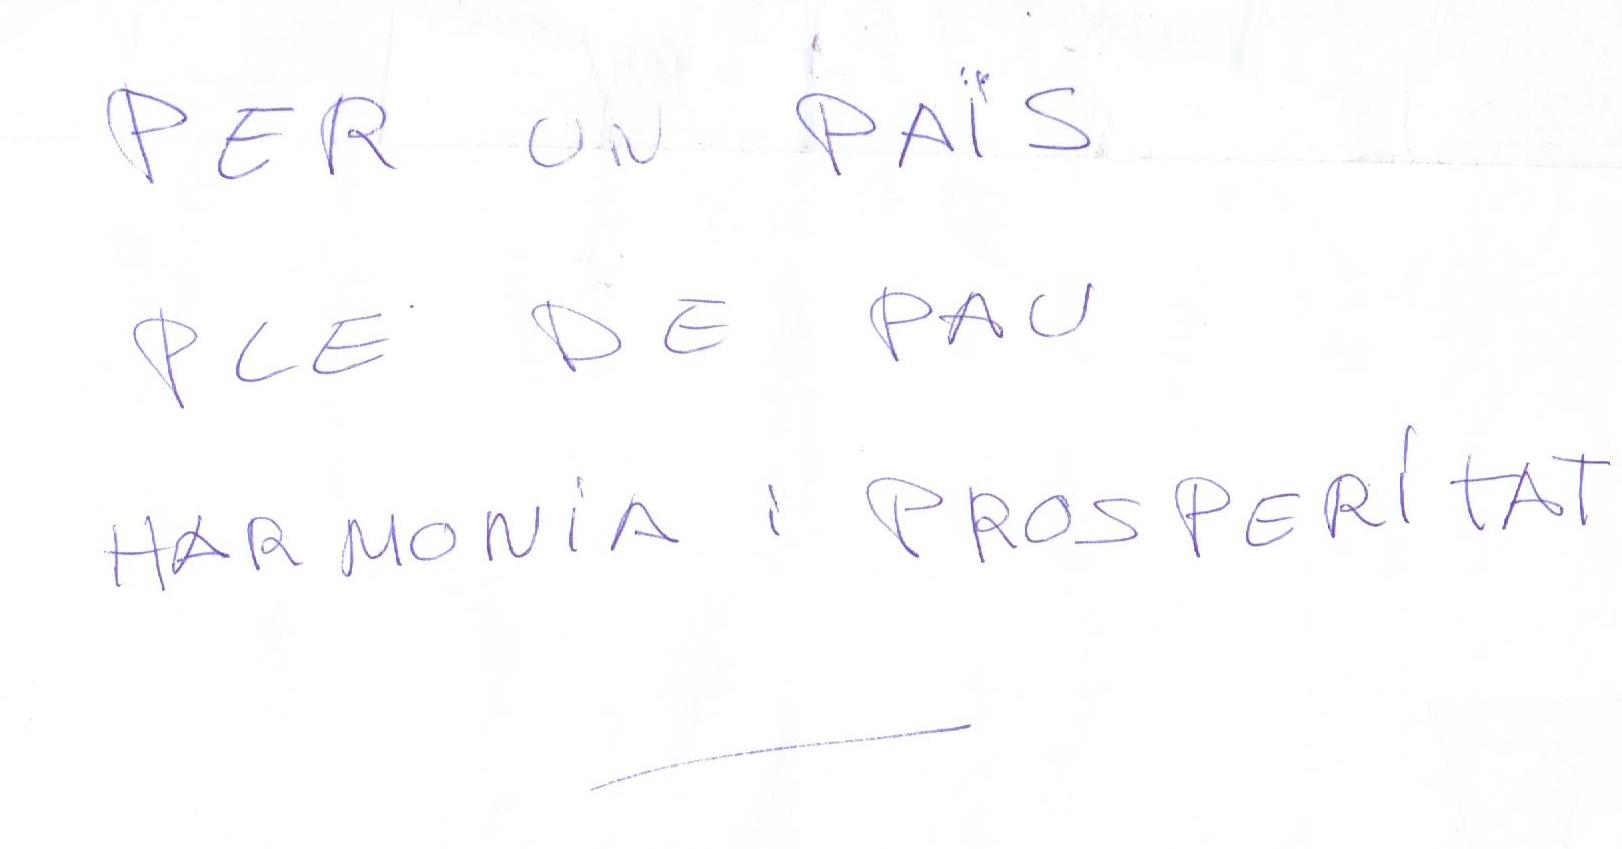 PER UN PAÏS
PLE DE PAU
HARMONiA i PROSPERITAT